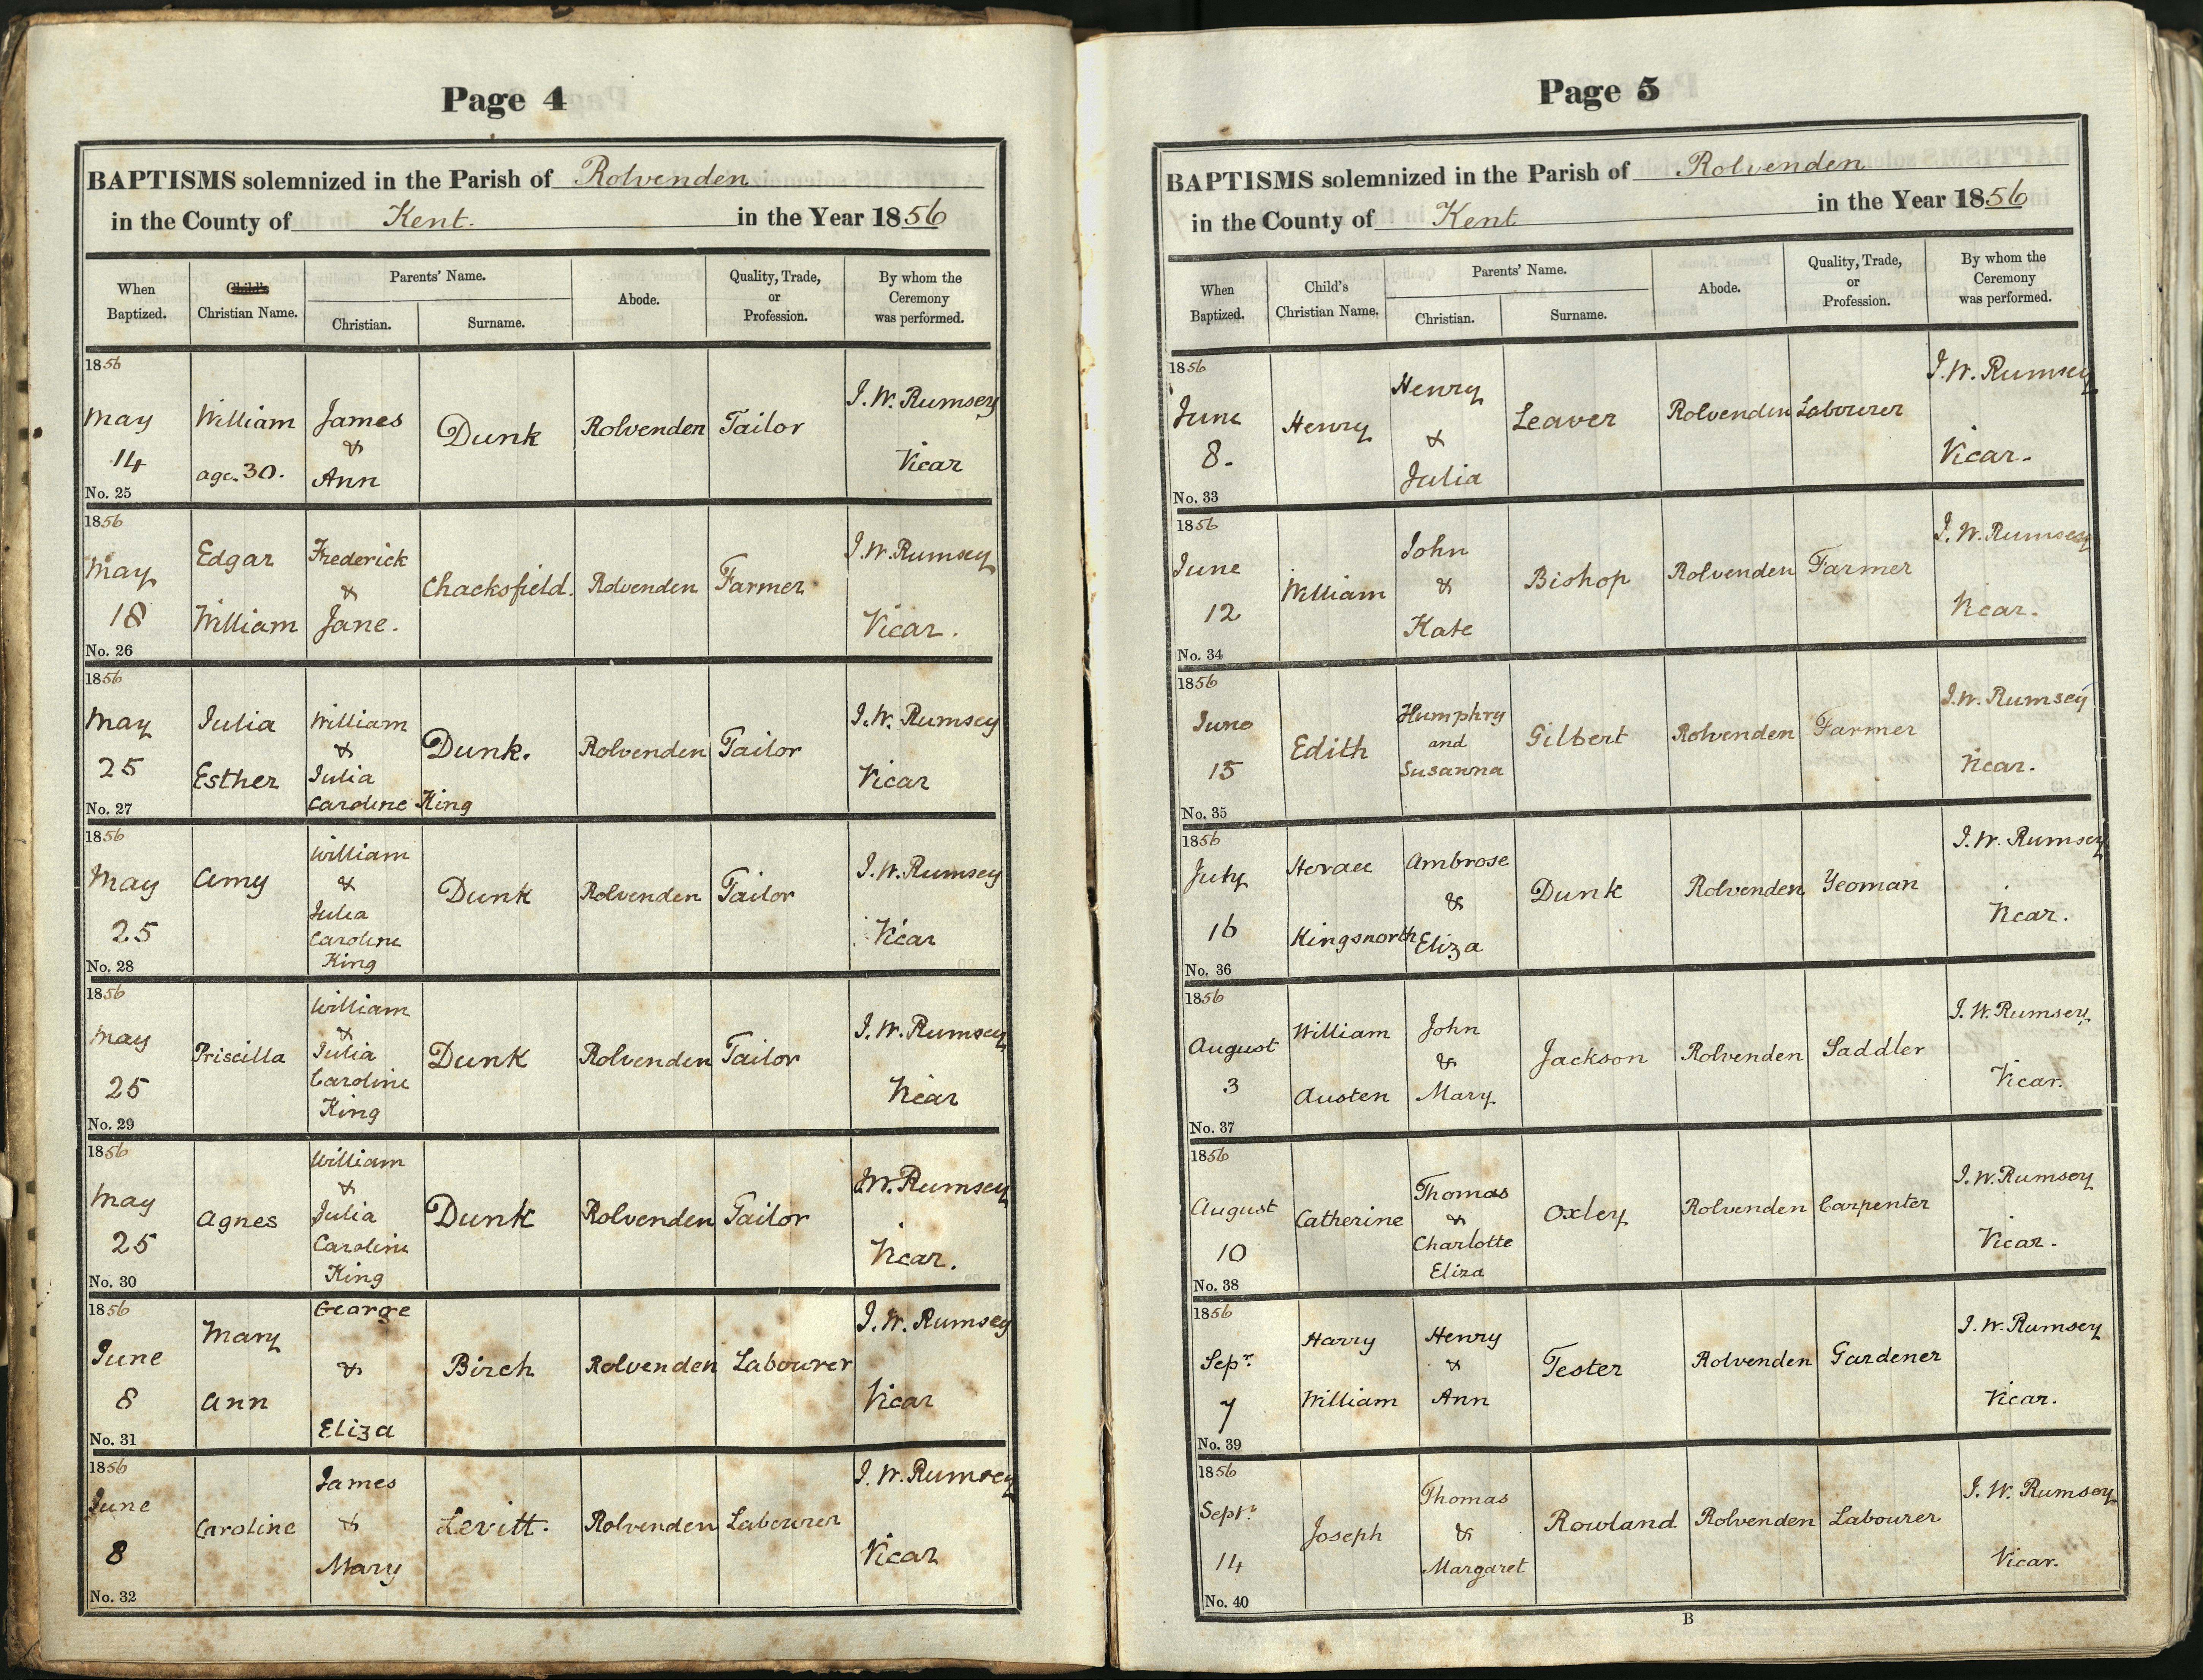 Page 4
BAPTISMS solemnized in the Parish of Rolvenden
in the County of Kent. in the Year 1856
When Baptized. Child's Christian Name. Parents' Name. Christian. Surname. Abode. Quality, Trade, or Profession. By whom the Ceremony was performed.
1856
May 14 William age 30. James & Ann Dunk Rolvenden Tailor J. W. Rumsey Vicar
No. 25
1856
May 18 Edgar William Frederick & Jane. Chacksfield. Rolvenden Farmer J. W. Rumsey Vicar.
No. 26
1856
May 25 Julia Esther William & Julia Caroline King Dunk. Rolvenden Tailor J. W. Rumsey Vicar
No. 27
1856
May 25 Amy William & Julia Caroline King Dunk Rolvenden Tailor J. W. Rumsey Vicar
No. 28
1856
May 25 Priscilla William & Julia Caroline King Dunk Rolvenden Tailor J. W. Rumsey Vicar
No. 29
1856
May 25 Agnes William & Julia Caroline King Dunk Rolvenden Tailor J. W. Rumsey Vicar.
No. 30
1856
June 8 Mary Ann George & Eliza Birch Rolvenden Labourer J. W. Rumsey Vicar
No. 31
1856
June 8 Caroline James & Mary Levitt. Rolvenden Labourer J. W. Rumsey Vicar
No. 32
Page 5
BAPTISMS solemnized in the Parish of Rolvenden
in the County of Kent in the Year 1856
When Baptized. Child's Christian Name. Parents' Name. Christian. Surname. Abode. Quality, Trade, or Profession. By whom the Ceremony was performed.
1856
June 8. Henry Henry & Julia Leaver Rolvenden Labourer J. W. Rumsey Vicar.
No. 33
1856
June 12 William John & Kate Bishop Rolvenden Farmer J. W. Rumsey Vicar.
No. 34
1856
June 15 Edith Humphry and Susanna Gilbert Rolvenden Farmer J. W. Rumsey Vicar.
No. 35
1856
July 16 Horace Kingsnorth Ambrose & Eliza Dunk Rolvenden Yeoman J. W. Rumsey Vicar.
No. 36
1856
August 3 William Austen John & Mary Jackson Rolvenden Saddler J. W. Rumsey Vicar.
No. 37
1856
August 10 Catherine Thomas & Charlotte Eliza Oxley Rolvenden Carpenter J. W. Rumsey Vicar.
No. 38
1856
Sepr. 7 Harry William Henry & Ann Tester Rolvenden Gardener J. W. Rumsey Vicar.
No. 39
1856
Septr. 14 Joseph Thomas & Margaret Rowland Rolvenden Labourer J. W. Rumsey Vicar.
No. 40
B